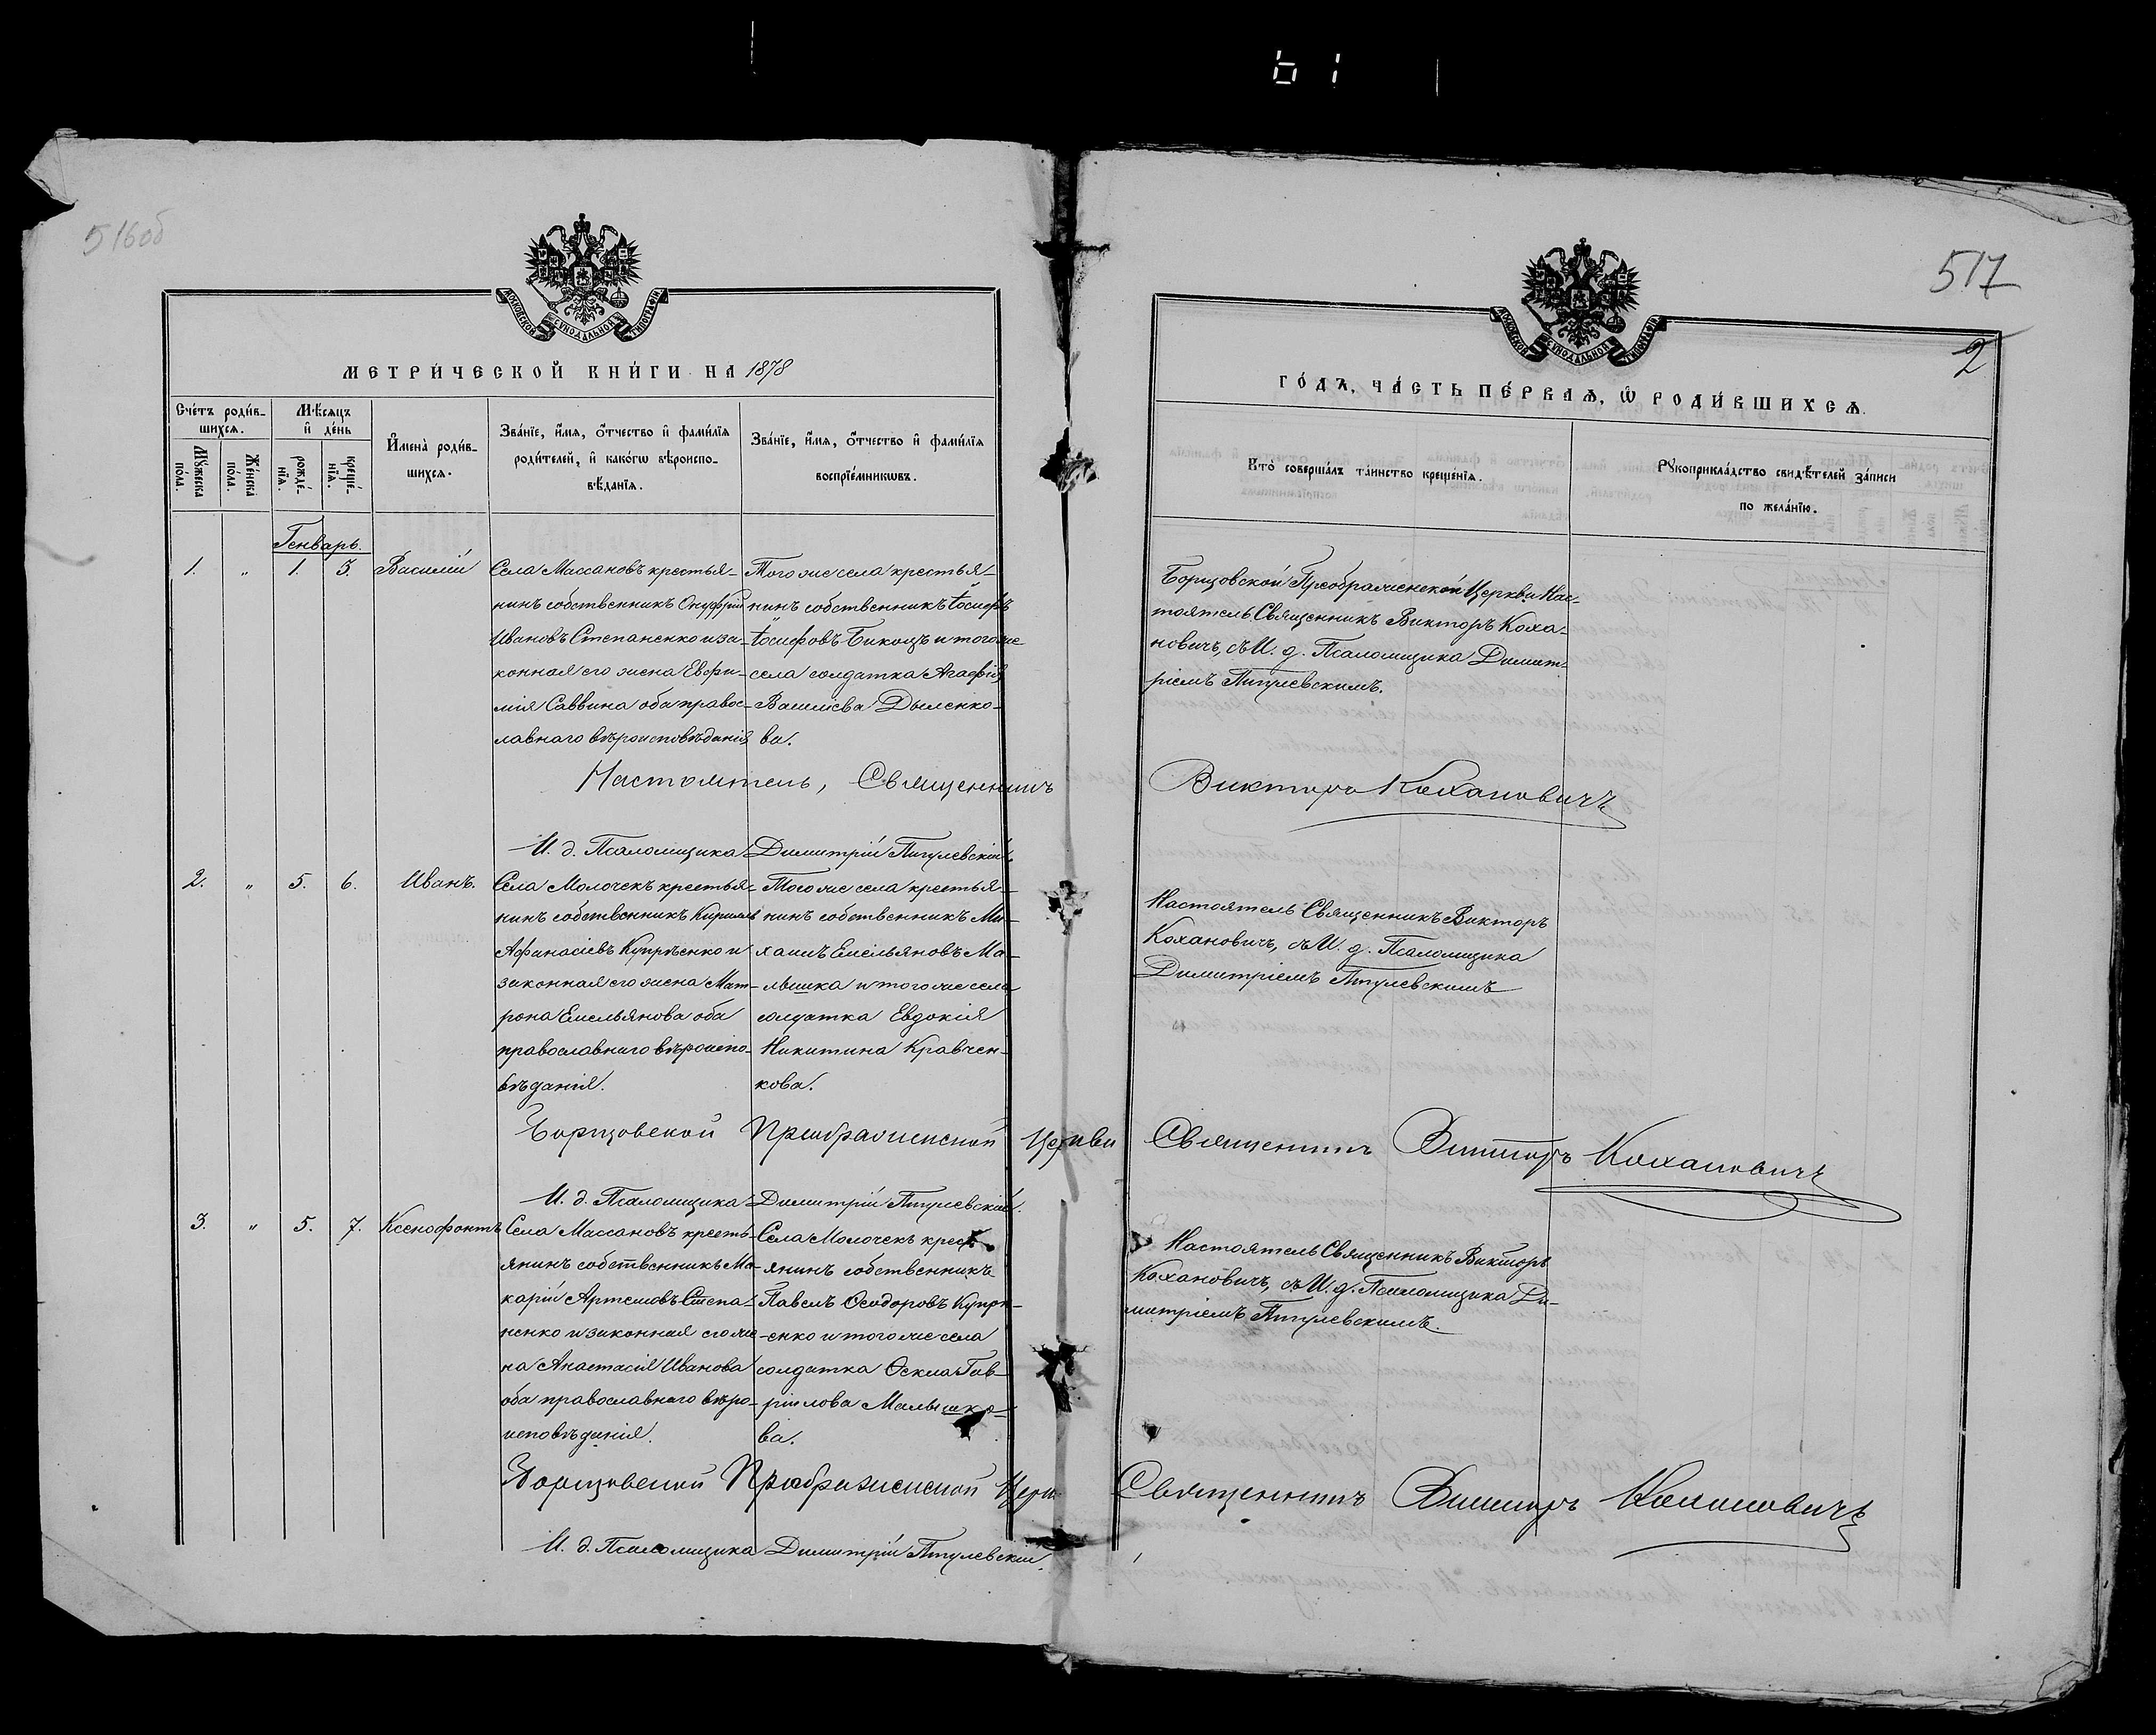 516об
МОСКОВСКОЙ СѴНОДАЛЬНОЙ ТИПОГРАФІИ
МЕТРИ́ЧЕСКОЙ КНИ́ГИ НА 1878
Сче́тъ роди́в-
шихся.
Мѣ́сяцъ
и҆ де́нь
Мꙋ́жеска
по́ла.
Же́нска
по́ла.
рожде́-
нїѧ.
креще́-
нїѧ.
И҆мена̀ роди́в-
шихсѧ.
Зва́нїе, и҆́мѧ, ѻ҆́тчество и҆ фами́лїѧ
роди́телей, и҆ како́гѡ вѣроиспо-
вѣ́данїѧ.
Зва́нїе, и҆́мѧ, ѻ҆́тчество и҆ фами́лїѧ
воспрїе́мникѡвъ.
Генварь.
1. " 1. 5. Василій
Села Массановъ крестья-
нинъ собственникъ Онуфрій
Ивановъ Степаненко и за-
конная его жена Евфи-
мія Саввина оба правос-
лавнаго вѣроисповѣданія
Того же села крестья-
нинъ собственникъ Іосифъ
Іосифовъ Бикоцъ и того же
села солдатка Агафія
Василіева Дыленко-
ва.
Настоятель, Священникъ
И. д. Псаломщика Димитрій Пигулевскій
2. " 5. 6. Иванъ.
Села Молочекъ крестья-
нинъ собственникъ Кириллъ
Афанасіевъ Купрѣенко и
законная его жена Мат-
рона Емельянова оба
православнаго вѣроиспо-
вѣданія.
Того же села крестья-
нинъ собственникъ Ми-
хаилъ Емельяновъ Ма-
лышка и того же села
солдатка Евдокія
Никитина Кравчен-
кова.
Борщовской Преображенской Церкви
И. д. Псаломщика Димитрій Пигулевскій.
3. " 5. 7. Ксенофонтъ
Села Массановъ кресть-
янинъ собственникъ Ма-
карій Артемовъ Степа-
ненко и законная его же-
на Анастасія Иванова
оба православнаго вѣро-
исповѣданія.
Села Молочекъ крест-
янинъ собственникъ
Павелъ Ѳеодоровъ Купрі-
енко и того же села
солдатка Ѳекла Гав-
ріилова Малышко-
ва.
Борщовской Преображенской Церк
И. д. Псаломщика Димитрій Пигулевскій.
517
2
МОСКОВСКОЙ СѴНОДАЛЬНОЙ ТИПОГРАФІИ
ГО́ДЪ, ЧА́СТЬ ПЕ́РВАѦ, Ѡ҆ РОДИ́ВШИХСѦ.
Кто̀ соверша́лъ та́инство креще́нїѧ.
Рꙋкоприкла́дство свидѣ́телей за́писи
по жела́нїю.
Борщовской Преображенской Церкви Нас-
тоятель Священникъ Викторъ Коха-
новичъ, съ И. д. Псаломщика Димит-
ріемъ Пигулевскимъ.
Викторъ Кохановичъ
Настоятель Священникъ Викторъ
Кохановичъ, съ И. д. Псаломщика
Димитріемъ Пигулевскимъ
Священникъ Викторъ Кохановичъ
Настоятель Священникъ Викторъ
Кохановичъ, съ И. д. Псаломщика Ди-
митріемъ Пигулевскимъ.
Священникъ Викторъ Кохановичъ